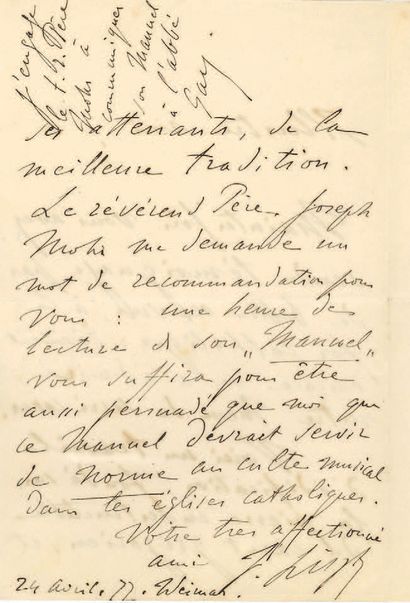 J'engage
le t. r. Père
Mohr à
communiquer
son Manuel
à l'abbé
Gay.
et attenants, de la
meilleure tradition.
Le révérend Père Joseph
Mohr me demande un
mot de recommandation pour
Vous : une heure de
lecture de son „Manuel„
vous suffira pour être
aussi persuadé que moi que
ce Manuel devrait servir
de norme au culte musical
dans les églises catholiques.
Votre très affectionné
ami F. Liszt
24 avril. 77. Weimar.